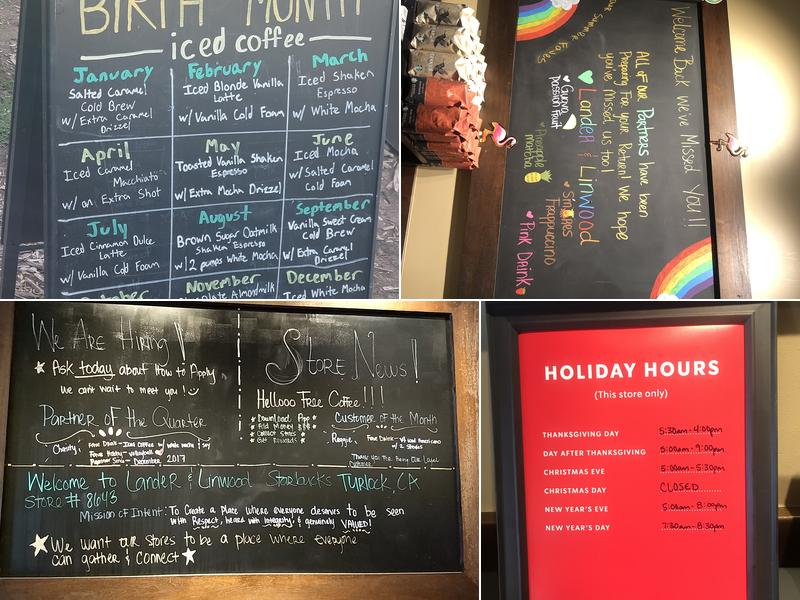 BIRTH MONTH
iced coffee
January
Salted Caramel
Cold Brew
w/ Extra Caramel
Drizzel
February
Iced Blonde Vanilla
Latte
w/ Vanilla Cold Foam
March
Iced Shaken
Espresso
w/ White Mocha
April
Iced Caramel
Macchiato
w/ an Extra Shot
May
Toasted Vanilla Shaken
Espresso
w/ Extra Mocha Drizzel
June
Iced Mocha
w/ Salted Caramel
Cold Foam
July
Iced Cinnamon Dulce
Latte
w/ Vanilla Cold Foam
August
Brown Sugar Oatmilk
Shaken Espresso
w/ 2 pumps White Mocha
September
Vanilla Sweet Cream
Cold Brew
w/ Extra Caramel
Drizzel
October
November
Chocolate Almondmilk
December
Iced White Mocha
Welcome Back we've Missed You!!
All of our Partners have been
Preparing For your Return! We hope
you've Missed us too!
Lander & Linwood
Our Summer Faves
Guava
passion Fruit
Pineapple
matcha
Frappuccino
Pink Drink
We Are Hiring!
Ask today about How to Apply
We can't wait to meet you!
Partner of the Quarter
Chasity:
Fave Drink - Iced Coffee w/ white mocha & soy
Fave Hobby - volleyball
Partner Since - December 2017
Store News!
Hellooo Free Coffee!!!
Download App
Add Money
Collect Stars
Get Rewards
Customer of the Month
Reggie
Fave Drink -
Thank you For Being Our Loyal
Customer!
Welcome to Lander & Linwood Starbucks Turlock, CA
Store # 8643
Mission of Intent: To Create a Place where everyone deserves to be seen
with Respect, heard with Integrity, & genuinely VALUED!
We want our stores to be a place where everyone
can gather & connect
HOLIDAY HOURS
(This store only)
THANKSGIVING DAY 5:30am-4:00pm
DAY AFTER THANKSGIVING 5:00am-9:00pm
CHRISTMAS EVE 5:00am-5:30pm
CHRISTMAS DAY CLOSED
NEW YEAR'S EVE 5:00am-8:00pm
NEW YEAR'S DAY 7:30am-8:30pm